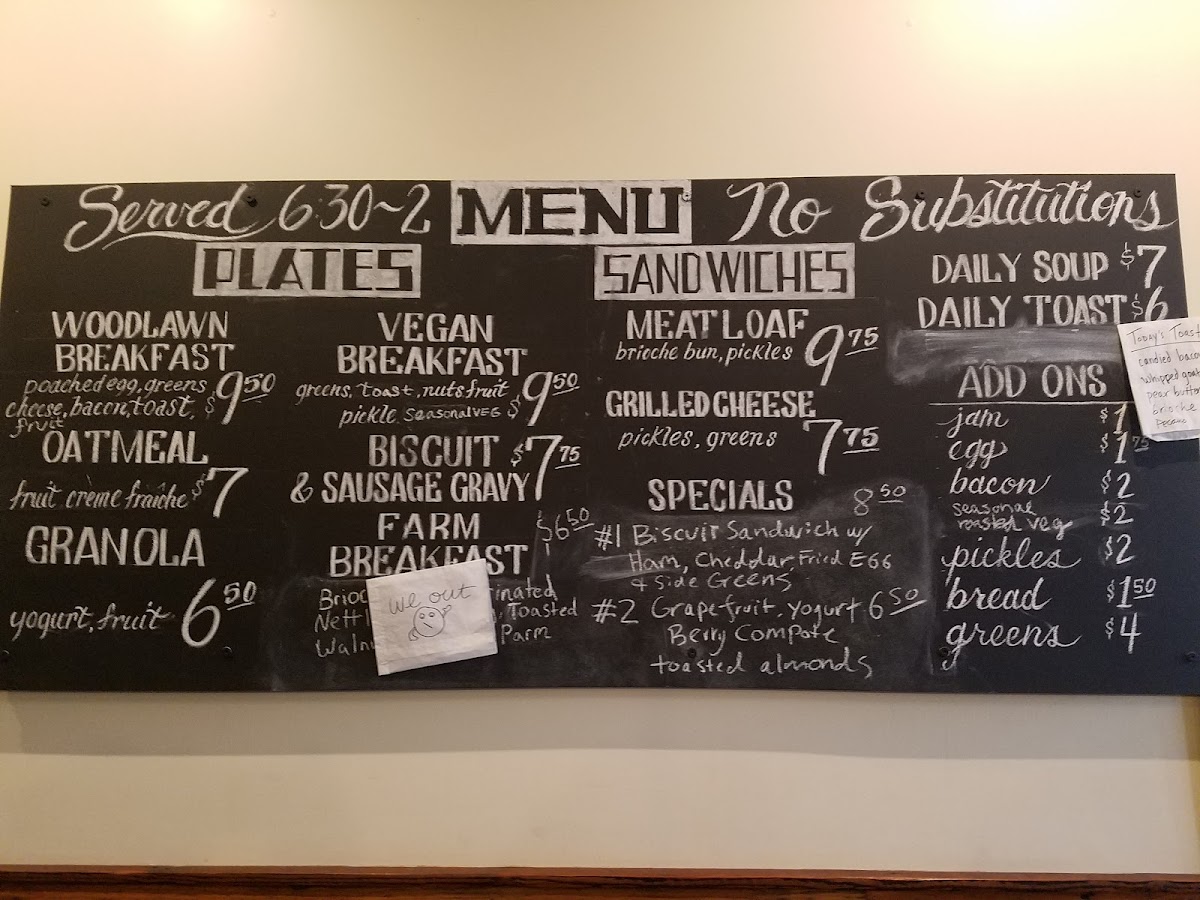 Served 6:30~2 MENU No Substitutions
PLATES
WOODLAWN
BREAKFAST
poached egg, greens
cheese, bacon, toast, $9 50
fruit
OATMEAL
fruit crème fraîche $7
GRANOLA
yogurt, fruit 6 50
VEGAN
BREAKFAST
greens, toast, nuts, fruit
pickle seasonal veg $9 50
BISCUIT $7 75
& SAUSAGE GRAVY
FARM $6 50
BREAKFAST
inated
Toasted
Parm
we out
SANDWICHES
MEATLOAF
brioche bun, pickles 9 75
GRILLED CHEESE
pickles, greens 7 75
SPECIALS 8 50
#1 Biscuit Sandwich w/
Ham, Cheddar, Fried Egg
& side Greens
#2 Grapefruit, yogurt 6 50
Berry Compote
toasted almonds
DAILY SOUP $7
DAILY TOAST $6
Today's Toast
candied bacon
whipped goat
pear butter
brioche
ADD ONS
jam $1
egg $1 75
bacon $2
seasonal
roasted veg $2
pickles $2
bread $1 50
greens $4